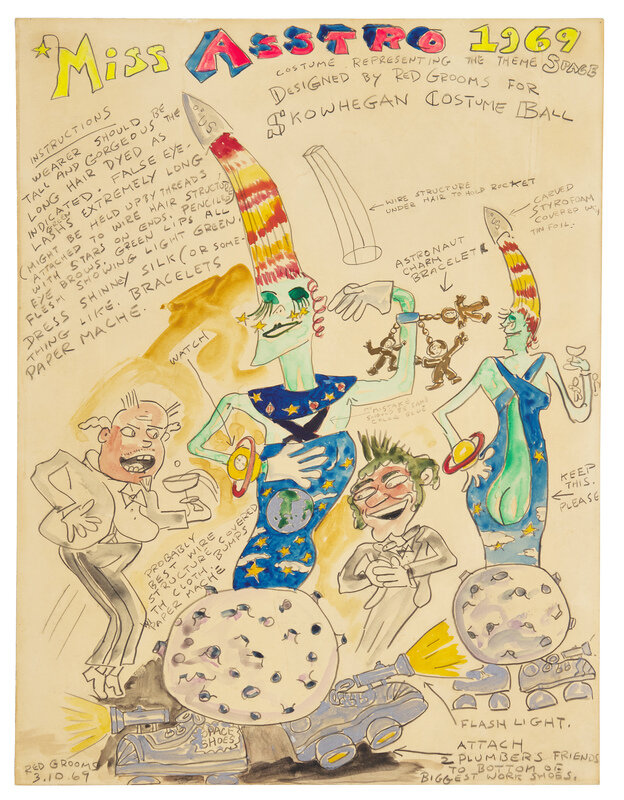 Miss ASSTRO 1969
COSTUME REPRESENTING THE THEME SPACE
DESIGNED BY RED GROOMS FOR
SKOWHEGAN COSTUME BALL
INSTRUCTIONS
WEARER SHOULD BE
TALL AND GORGEOUS. THE
LONG HAIR DYED AS
INDICATED. FALSE EYE-
LASHES EXTREMELY LONG
(MIGHT BE HELD UP BY THREADS
ATTACHED TO WIRE HAIR STRUCTURE)
WITH STARS ON ENDS. PENCILED
EYE BROWS. GREEN LIPS ALL
FLESH SHOWING LIGHT GREEN.
DRESS SHINNEY SILK (OR SOME-
THING LIKE. BRACELETS
PAPER MACHE.
WIRE STRUCTURE
UNDER HAIR TO HOLD ROCKET
CARVED
STYROFOAM
COVERED W/
TIN FOIL.
ASTRONAUT
CHARM
BRACELET
WATCH
MISTAKE
SHOULD BE SAME
COLOR BLUE
KEEP
THIS.
PLEASE
PROBABLY
BEST WIRE
STRUCTURE COVERED
WITH CLOTH. BUMPS
PAPER MACHE
SPACE
SHOES
FLASH LIGHT.
ATTACH
2 PLUMBERS FRIENDS
TO BOTTOM OF
BIGGEST WORK SHOES.
RED GROOMS
3.10.69